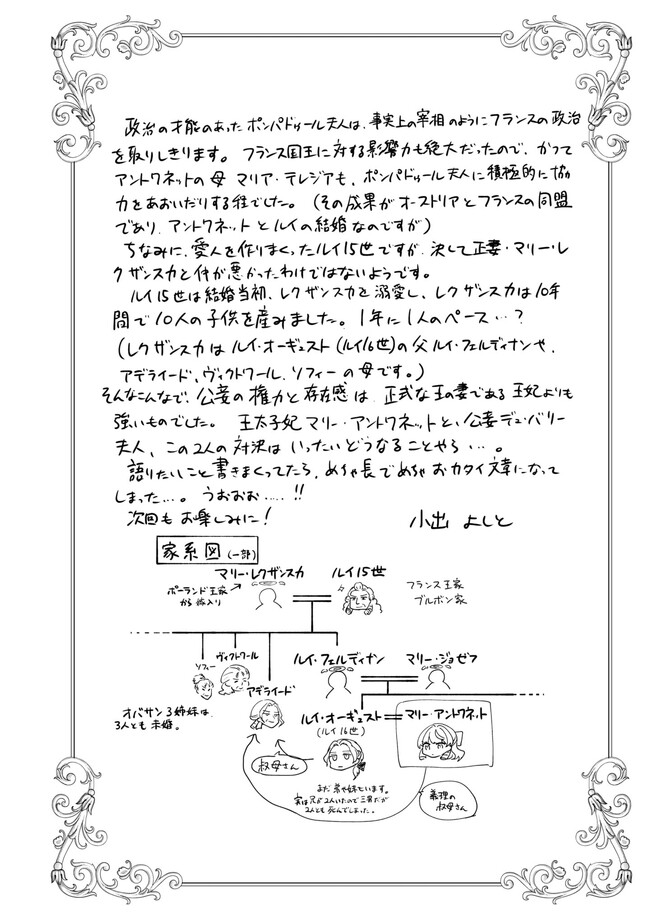 政治の才能のあったポンパドゥール夫人は、事実上の宰相のようにフランスの政治
を取りしきります。フランス国王に対する影響力も絶大だったので、かつて
アントワネットの母 マリア・テレジアも、ポンパドゥール夫人に積極的に協
力をあおいだりする程でした。(その成果がオーストリアとフランスの同盟
であり、アントワネットとルイの結婚なのですが)
ちなみに、愛人を作りまくったルイ15世ですが、決して正妻・マリー・レ
クザンスカと仲が悪かったわけではないようです。
ルイ15世は結婚当初、レクザンスカを溺愛し、レクザンスカは10年
間で10人の子供を産みました。1年に1人のペース…?
(レクザンスカはルイ・オーギュスト(ルイ16世)の父ルイ・フェルディナンや、
アデライード、ヴィクトワール、ソフィーの母です。)
そんなこんなで、公妾の権力と存在感は、正式な王の妻である王妃よりも
強いものでした。王太子妃マリー・アントワネットと、公妾デュ・バリー
夫人、この2人の対決はいったいどうなることやら…。
語りたいこと書きまくってたら、めちゃ長でめちゃおカタイ文章になって
しまった…。うおおお……!!
次回もお楽しみに!
小出 よしと
家系図(一部)
マリー・レクザンスカ
ルイ15世
ポーランド王家
から嫁入り
フランス王家
ブルボン家
ソフィー
ヴィクトワール
アデライード
ルイ・フェルディナン
マリー・ジョゼフ
オバサン3姉妹は、
3人とも未婚。
ルイ・オーギュスト
(ルイ16世)
マリー・アントワネット
叔母さん
まだ弟や妹もいます。
実は兄が2人いたので三男だが
2人とも死んでしまった。
義理の
叔母さん